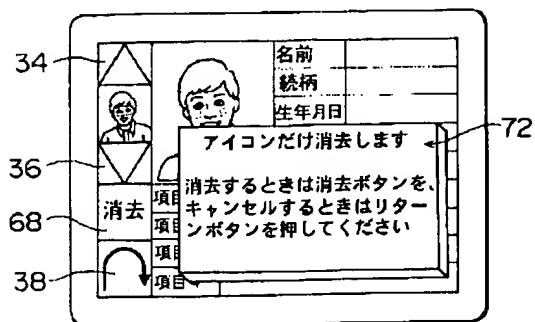 34
36
68
38
72
消去
名前
続柄
生年月日
アイコンだけ消去します
消去するときは消去ボタンを、
キャンセルするときはリター
ンボタンを押してください
項目
項目
項目
項目